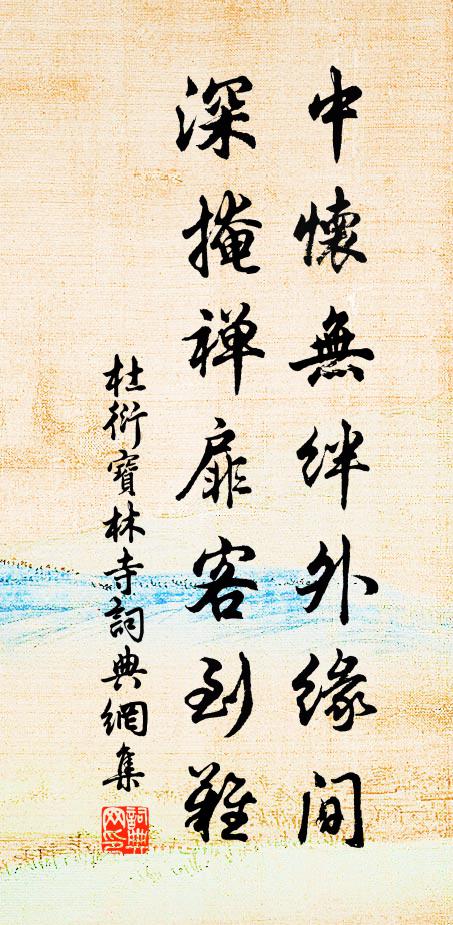 中懷無絆外緣间
深掩禅扉客到難
杜衍寶林寺詞典網集
詞典网印